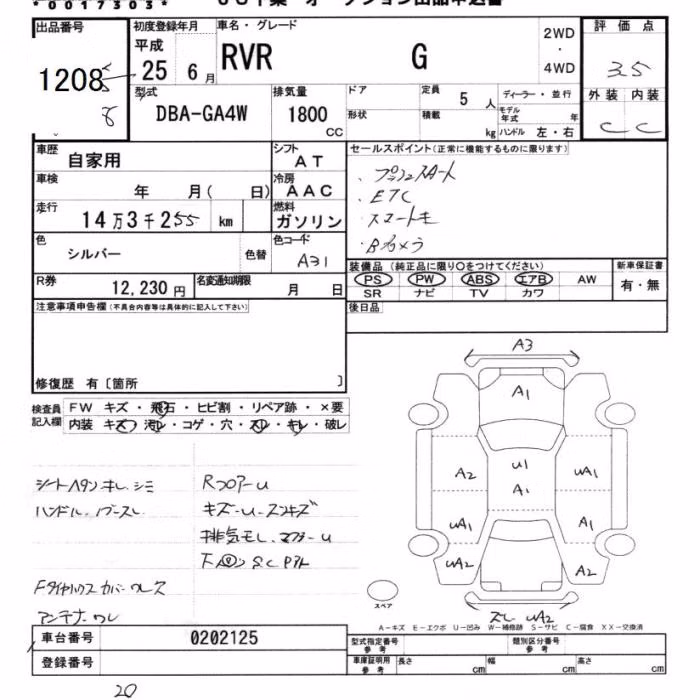 *0017303*
出品番号
1208
8
初度登録年月
平成
25 6月
車名・グレード
RVR G
2WD
・
4WD
評価点
3.5
外装 内装
C C
型式
DBA-GA4W
排気量
1800
CC
ドア
形状
定員
5人
積載
kg
ディーラー・並行
モデル
年式 年
ハンドル 左・右
車歴
自家用
シフト
AT
車検
年 月( 日)
冷房
AAC
走行
14万3千255 km
燃料
ガソリン
色
シルバー
色替
色コード
A31
R券
12,230円
名変通知期限
月 日
セールスポイント(正常に機能するものに限ります)
、プッシュスタート
、ETC
・スマートキー
・Bカメラ
装備品 (純正品に限り○をつけてください)
PS PW ABS エアB AW
SR ナビ TV カワ
新車保証書
有・無
後日品
注意事項申告欄(不具合内容等は具体的に記入して下さい)
修復歴 有〔箇所 〕
検査員
記入欄
FW キズ・飛石・ヒビ割・リペア跡・×要
内装 キズ・汚レ・コゲ・穴・スレ・キレ・破レ
シートヘタンキレ、シミ
RフロアーU
キズ-U-スソキズ
アンテナ ワレ
A3
A1
A2
U1
A1
UA1
UA1
A1
UA2
A2
UA2
スペア
A-キズ E-エクボ U-凹み W-補修跡 S-サビ C-腐食 XX-交換済
車台番号
0202125
登録番号
型式指定番号
参考
類別区分番号
参考
車庫証明用
参考
長さ cm
幅 cm
高さ cm
20